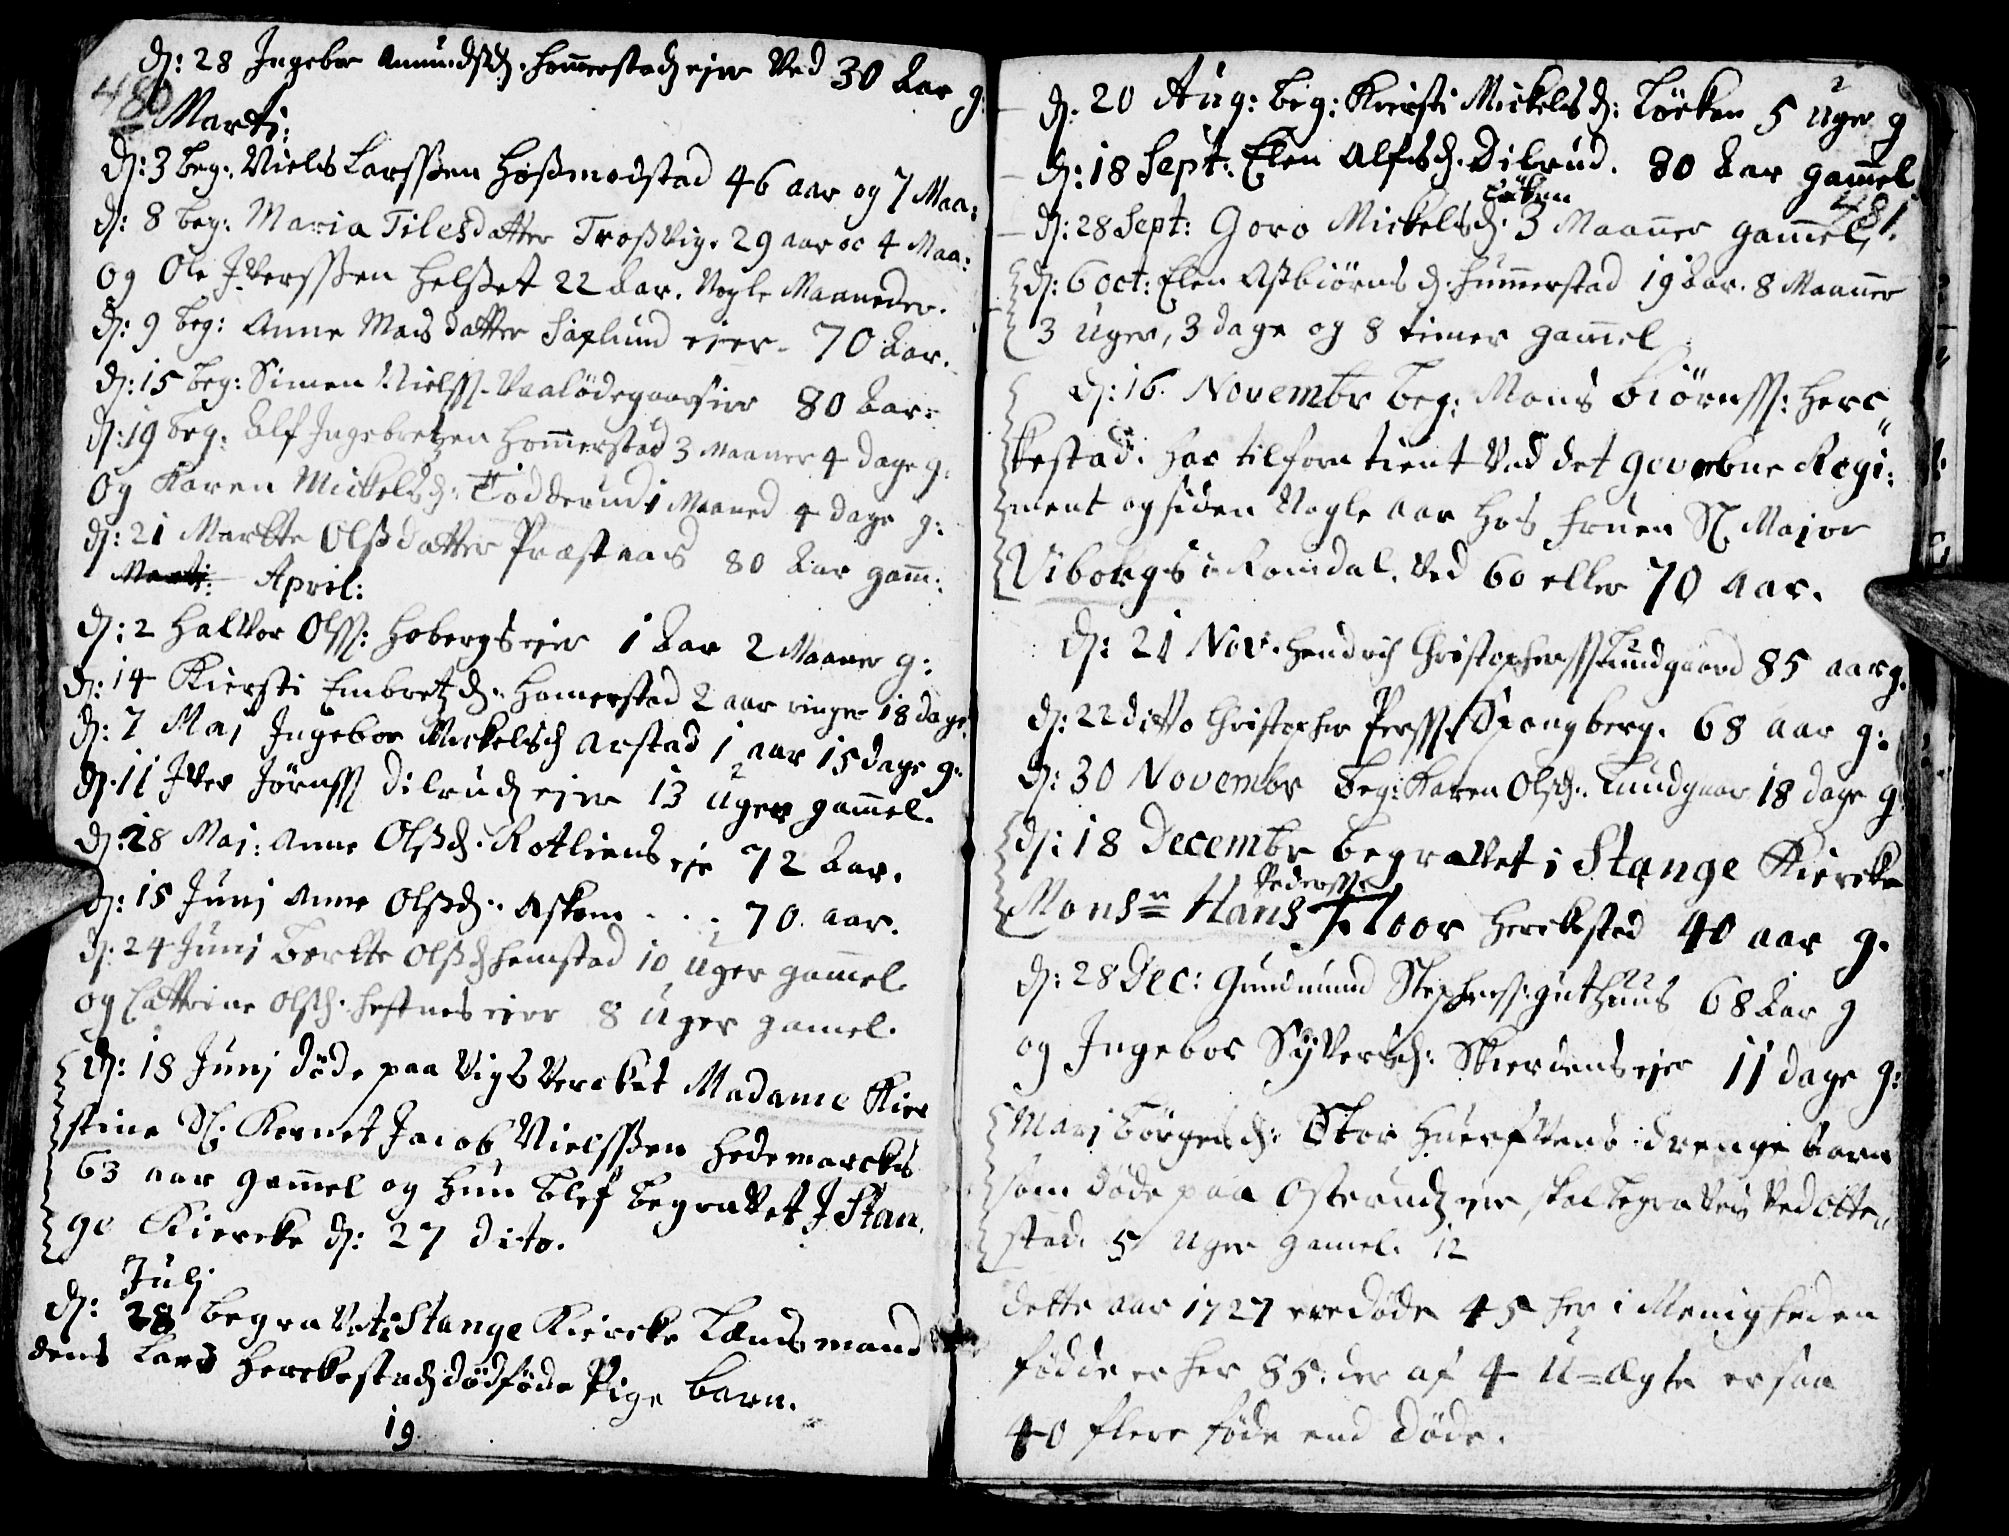 480
d: 28 Ingebor Amundsd. Hommerstadz eier Ved 30 Aar g:
Marti:
d: 3 beg: Niels Larssen Hosmodstad 46 aar og 7 Maa:
d: 8 beg: Maria Tilesdatter Trosvig. 29 aar oc 4 Maa:
og Ole Iverssen Helset 22 Aar. Nogle Maaneder.
d: 9 beg: Anne Madsdatter Saxlund eier. 70 Aar.
d: 15 beg: Simen Nielss. Vaalödegaardseier 80 Aar:
d: 19 beg: Alf Ingebretzen Hommerstad 3 Maaner 4 dage g:
og Karen Mickelsd: Tödderud 1 Maaned 4 dage g:
d: 21 Martte Olsdatter Præstnæs 80 Aar gam:
Marti: April:
d: 2 Halvor Olss: Hobergs eier 1 Aar 2 Maaner g:
d: 14 Kiersti Embretzd. Homerstad 2 aar ringer 18 dage
d: 7 Maj Ingebor Mickelsd Arstad 1 aar 15 dage g.
d. 11 Iver Jörnss Dilrudz eier 13 Uger gammel.
d: 28 Maj: Anne Olsd. Rotliens eje 72 Aar.
d: 15 Junj Anne Olsd. Askem . . . 70. aar.
d: 24 Junj Bertte Olsd Hemstad 10 Uger gammel
og Cattrine Olsd. Hestnes eier 8 Uger gamel.
d: 18 Junj döde paa Vigs Vercket Madame Kier
stine Sl. Kornet Jacob Nielssen Hedemarckes
63 aar gammel og hun blef begravet I Stan,
ge Kiercke d: 27 dito.
Julj
d: 28 begravet i Stange Kiercke Lændsmand
dens Lars Herckestadz dödföde Pige barn.
19
d: 20 Aug: beg: Kiersti Mickelsd: Löcken 5 Uger g
d: 18 Sept: Elen Alfsd. Dilrud. 80 Aar gammel
Löken
481.
d: 28 Sept: Goro Mickelsd. 3 Maaner gammel
d: 6 oct: Elen Asbiörnsd. Hummerstad 19 Aar. 8 Maaner
3 Uger, 3 dage og 8 timer gammel
d: 16. Novembr beg: Mons Biörnss: Herc„
kestad. har tilforn tient Ved det gevorbne Regi:
ment og siden Nogle Aar hos Fruen Sl. Major
Viborgs i Romdal. Ved 60 eller 70 Aar.
d: 21 Nov. Hendrich Christopherss Lundgaard 85 aar g.
d: 22 ditto Christopher Perss. Spongberg. 68 aar g:
d: 30 Novembr beg: Karen Olsd. Lundgaar 18 dage g
d: 18 Decembr begravet i Stange Kiercke
Pederss.
Monsr Hans Floor Herckestad 40 aar g.
d: 28 Dec: Gundmund Stephenss: Guthuus 68 Aar g
og Ingebor Syversd: Skierdens eier 11 dage g:
Marj Börgesd. Stor Huerfvens drenge barn
som döde paa Osterudz eje, skal begraves Ved Otte„
stad. 5 Uger gamel. 12
dette aar 1727 ere döde 45 her i Menigheden
födde er her 85. der af 4 U=ægte er saa
40 flere föde end döde.